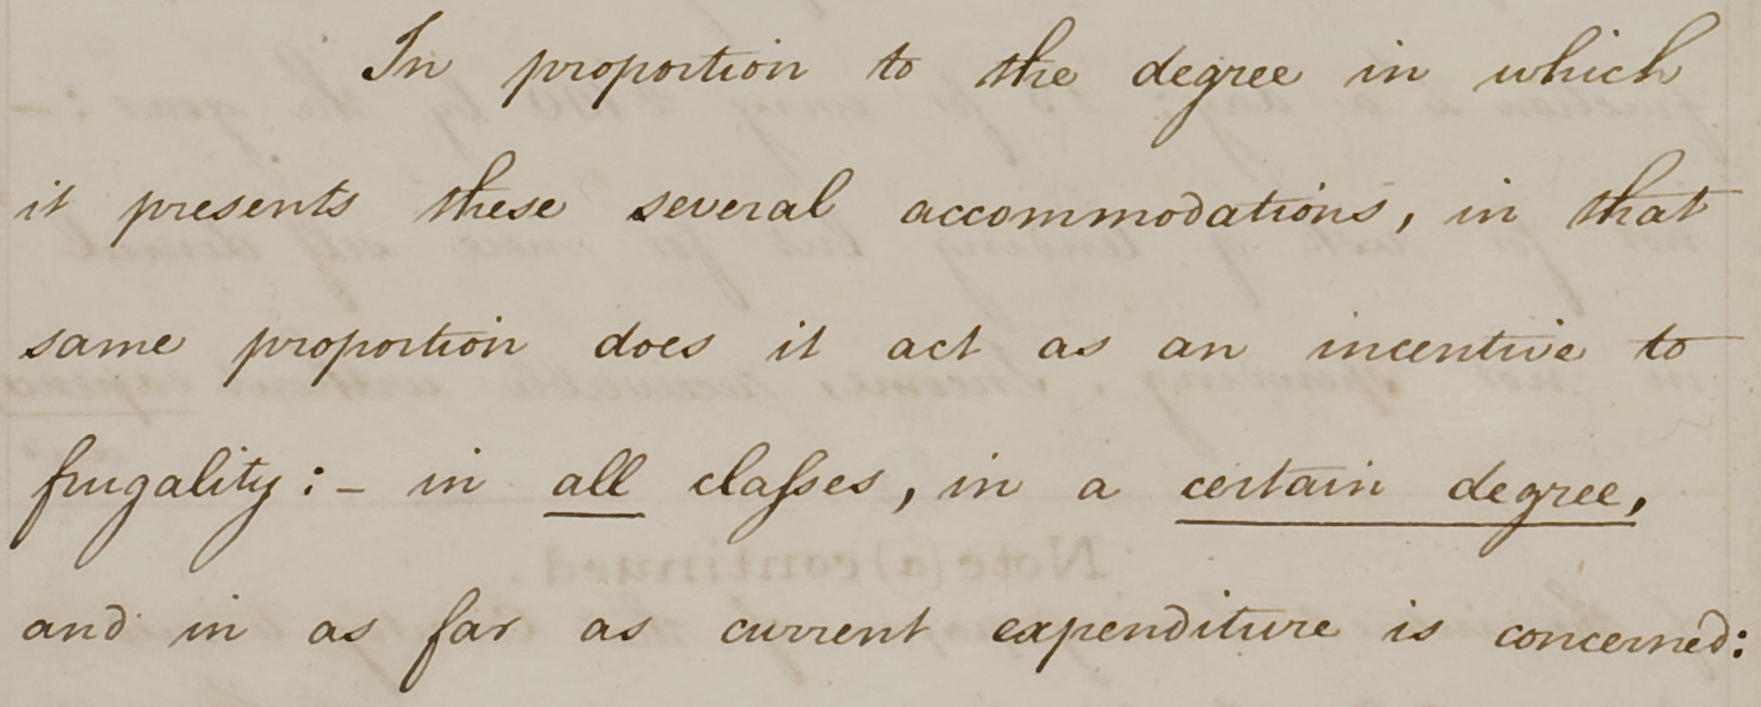 In proportion to the degree in which
it presents these several accommodations, in that
same proportion does it act as an incentive to
frugality:- in all claſses, in a certain degree,
and in as far as current expenditure is concerned:
Note (a) continued.